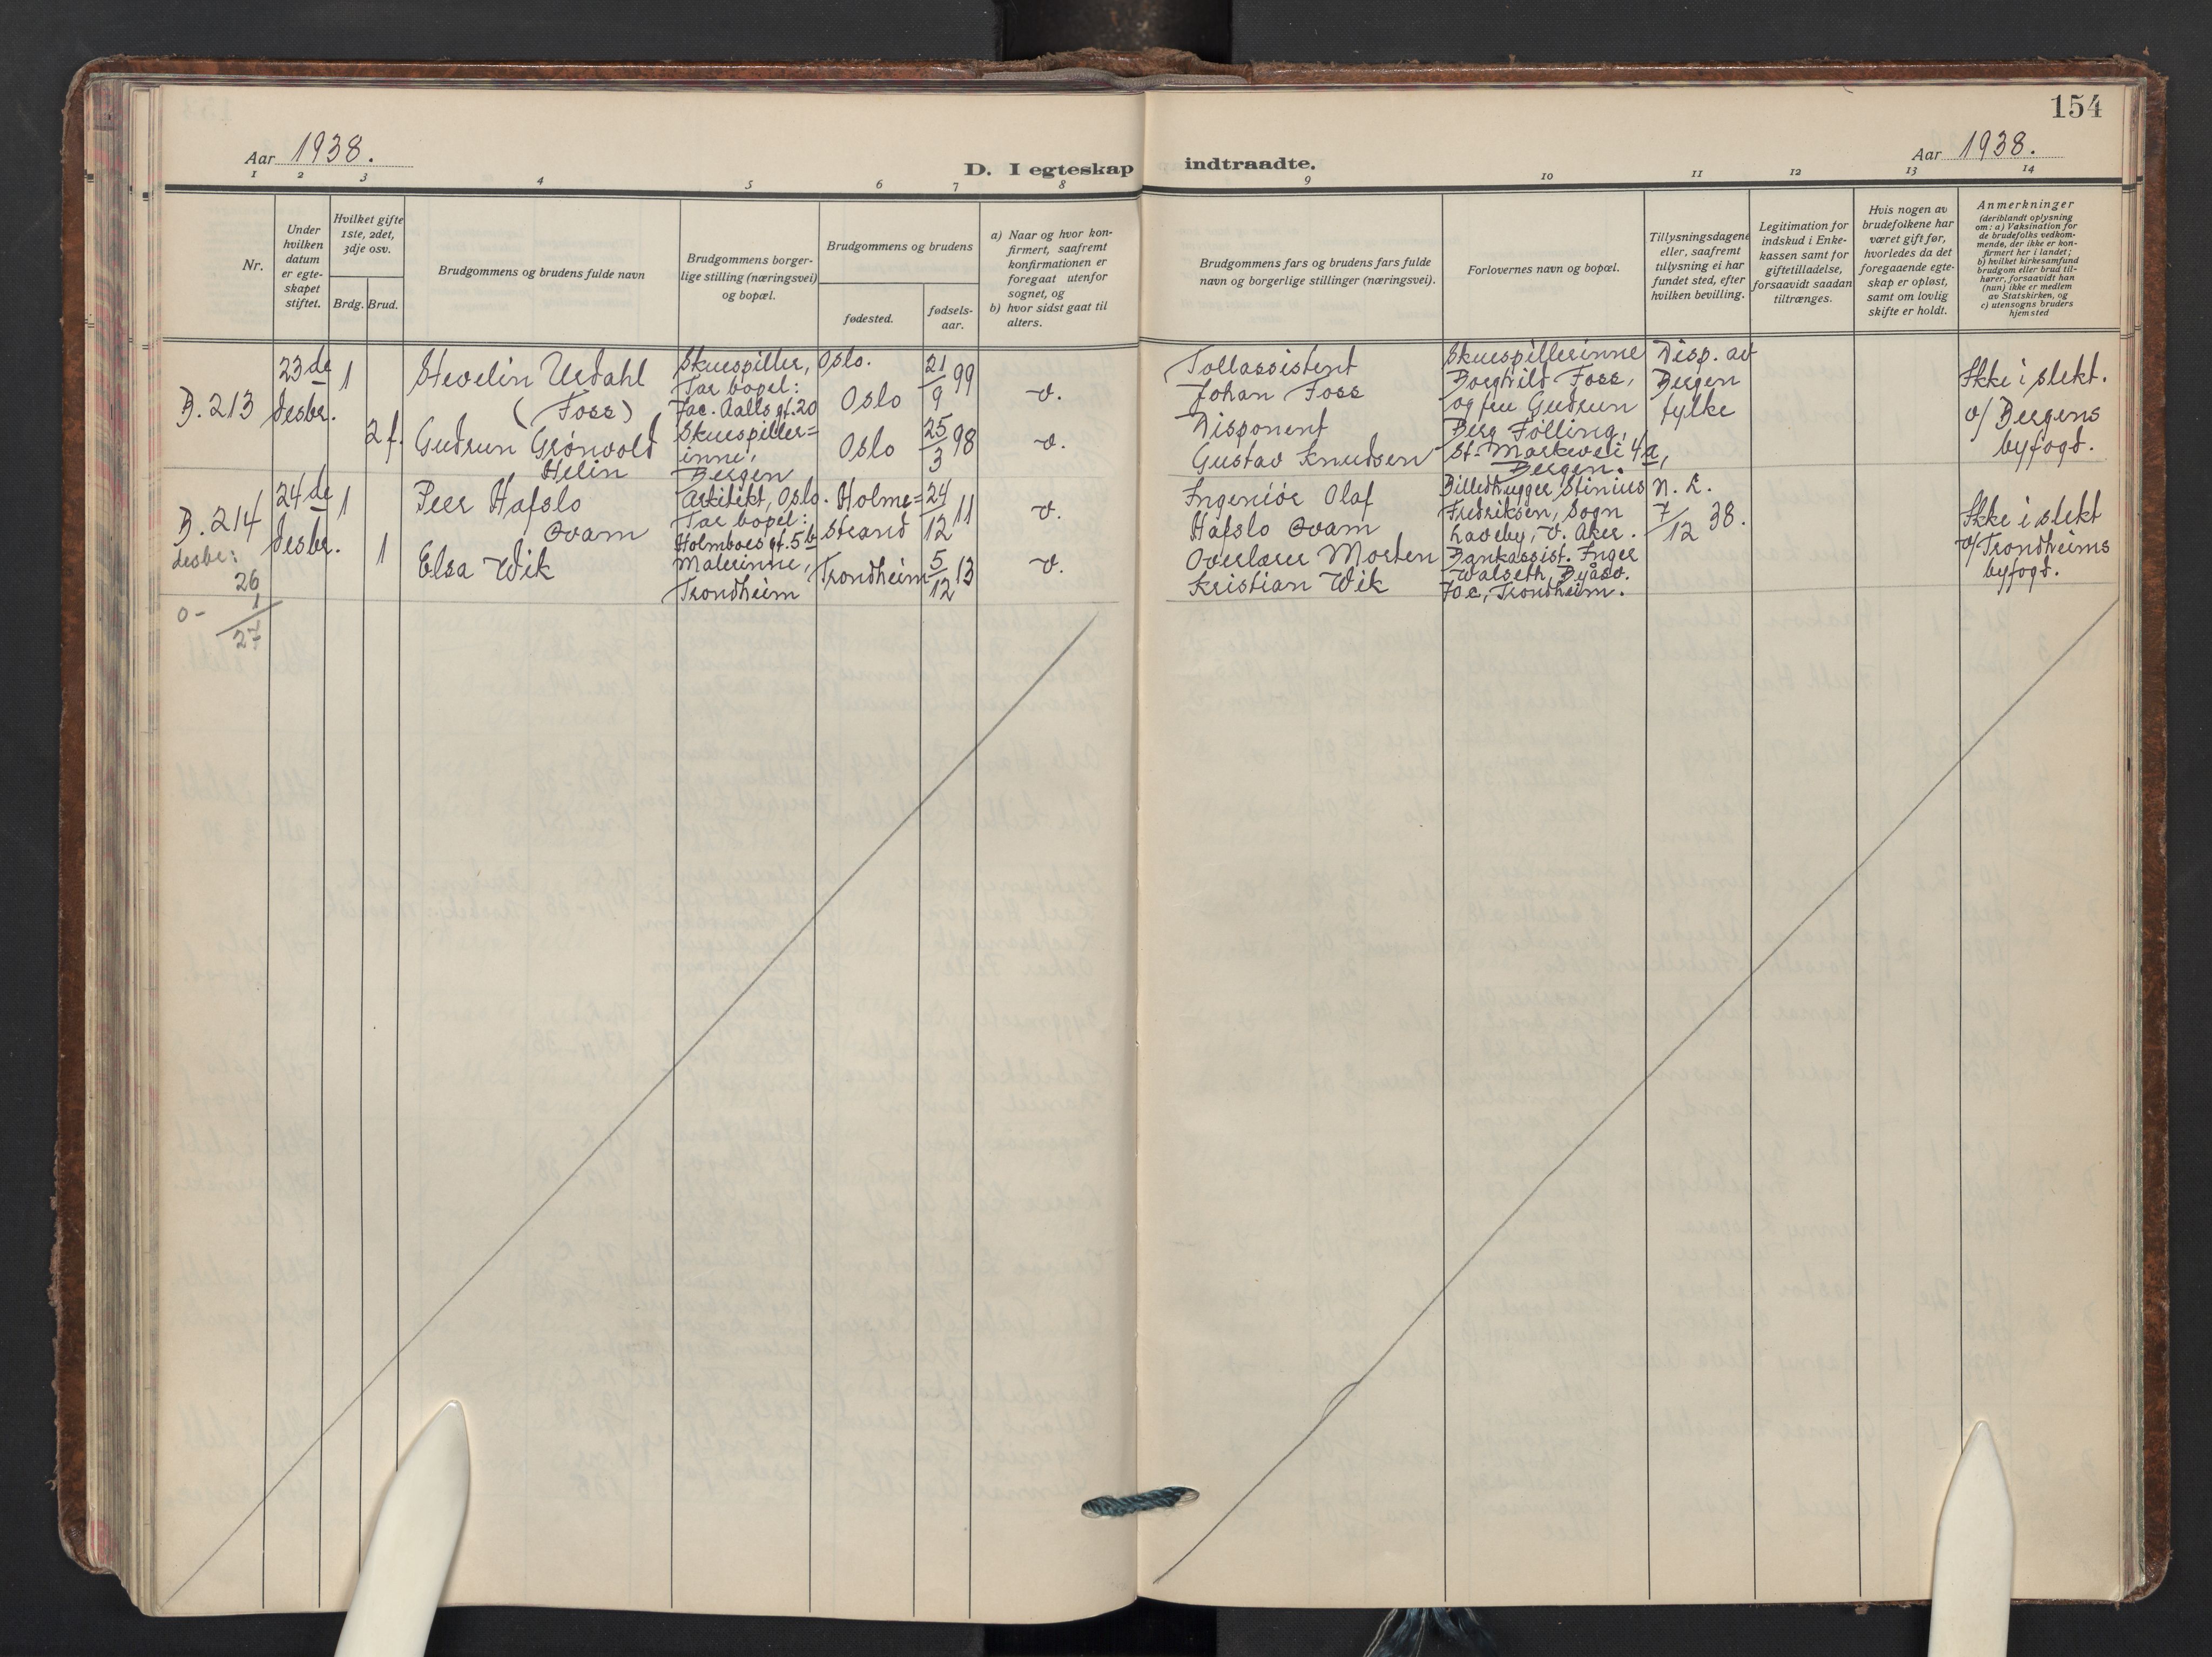 154
Aar 1938.
D. I egteskap indtraadte.
Aar 1938.
1 2 3 4 5 6 7 8 9 10 11 12 13 14
Nr.
Under hvilken datum er egte-skapet stiftet.
Hvilket gifte 1ste, 2det, 3dje osv.
Brdg. Brud.
Brudgommens og brudens fulde navn
Brudgommens borger-
lige stilling (næringsvei)
og bopæl.
Brudgommens og brudens
fødested.
fødsels-
aar.
a) Naar og hvor kon-
firmert, saafremt
konfirmationen er
foregaat utenfor
sognet, og
b) hvor sidst gaat til
alters.
Brudgommens fars og brudens fars fulde
navn og borgerlige stillinger (næringsvei).
Forlovernes navn og bopæl.
Tillysningsdagene
eller, saafremt
tillysning ei har
fundet sted, efter
hvilken bevilling.
Legitimation for
indskud i Enke-
kassen samt for
giftetilladelse,
forsaavidt saadan
tiltrænges.
Hvis nogen av
brudefolkene har
været gift før,
hvorledes da det
foregaaende egte-
skap er opløst,
samt om lovlig
skifte er holdt.
Anmerkninger
(deriblandt oplysning
om: a) Vaksination for
de brudefolks vedkom-
mende, der ikke er kon-
firmert her i landet;
b) hvilket kirkesamfund
brudgom eller brud til-
hører, forsaavidt han
(hun) ikke er medlem
av Statskirken, og
c) utensogns bruders
hjemsted
B. 213
23de
desbr.
1
2 f.
Stevelin Urdahl
(Foss)
Gudrun Grønvold
Helin
Skuespiller,
Tar bopel:
Jac. Aalls gt. 20
Skuespiller=
inne,
Bergen
Oslo.
Oslo
Oslo
21/9 99
25/3 98
v.
v.
Tollassistent
Johan Foss
Disponent
Gustav Knudsen
Skuespillerinne
Borghild Foss,
og fru Gudrun
Berg Følling,
St. Markevei 4a,
Bergen.
Disp. av
Bergen
fylke
Ikke i slekt.
v/ Bergens
byfogd.
B. 214
24de
desbr.
1
1
Peer Hafslo
Qvam
Elsa Wik
Arkitekt, Oslo.
Tar bopel:
Holmboes gt. 5b
Malerinne,
Trondheim
Holme=
strand
Trondheim
24/12 11
5/12 13
v.
v.
Ingeniør Olaf
Hafslo Qvam
Overlærer Morten
Kristian Wik
Billedhugger Stinius
Fredriksen, Sogn
haveby, V. Aker.
Bankassist. Inger
Walseth, Byåsv.
Trondheim.
N. L.
7/12 38.
Ikke i slekt
v/ Trondheims
byfogd.
desbr:
26
o- 1
27